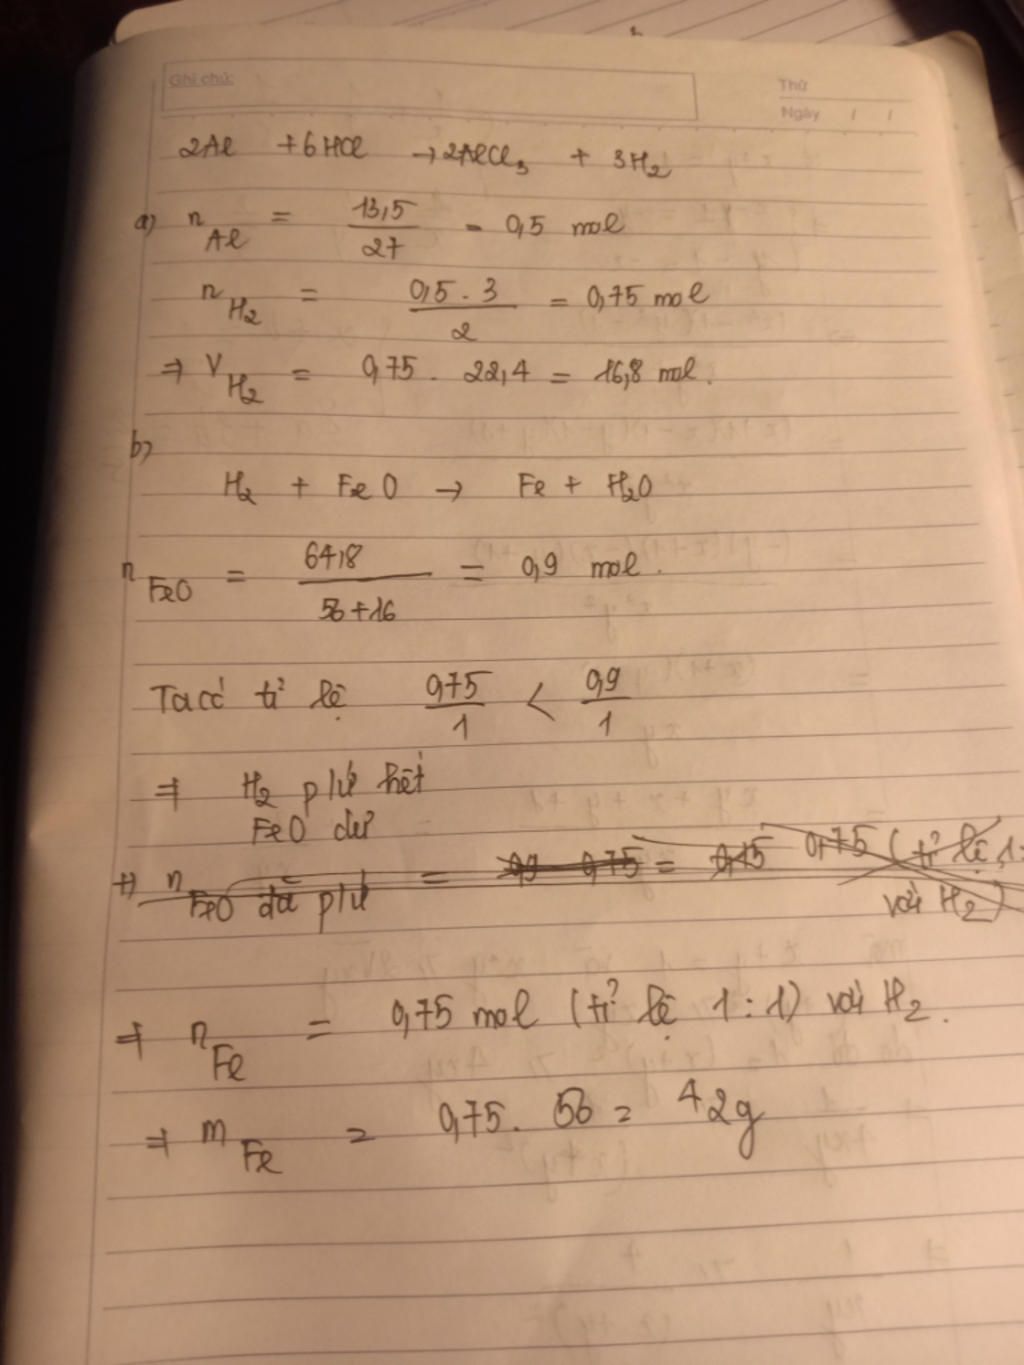 Ghi chú:
Thứ
Ngày / /
2Al + 6HCl → 2AlCl₃ + 3H₂
a) n Al = 13,5 / 27 = 0,5 mol
n H₂ = 0,5 . 3 / 2 = 0,75 mol
⇒ V H₂ = 0,75 . 22,4 = 16,8 mol.
b)
H₂ + FeO → Fe + H₂O
n FeO = 64,8 / 56+16 = 0,9 mol.
Ta có tỉ lệ 0,75 / 1 < 0,9 / 1
⇒ H₂ p/ứ hết
FeO dư
n FeO đã p/ứ = 0,9 - 0,75 = 0,15 0,75 (tỉ lệ 1:
với H₂)
⇒ n Fe = 0,75 mol (tỉ lệ 1 : 1) với H₂.
⇒ m Fe = 0,75 . 56 = 42g